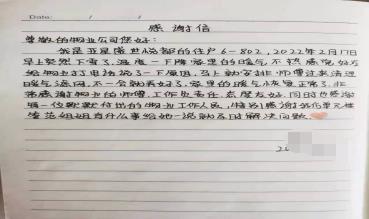 Date: / /
感谢信
尊敬的物业公司您好:
我是亚星盛世悦都的住户6-802,2022年2月17日
早上突然下雪了,温度一下降家里的暖气不热感觉
给物业打电话说了一下原因,马上就安排师傅过来清理
暖气滤网,不一会就弄好了,家里的暖气恢复正常了,非
常感谢物业的师傅,工作负责任,态度友好,同时也感谢
每一位默默付出的物业工作人员,特别感谢
姐姐有什么事给她一说就及时解决问题。